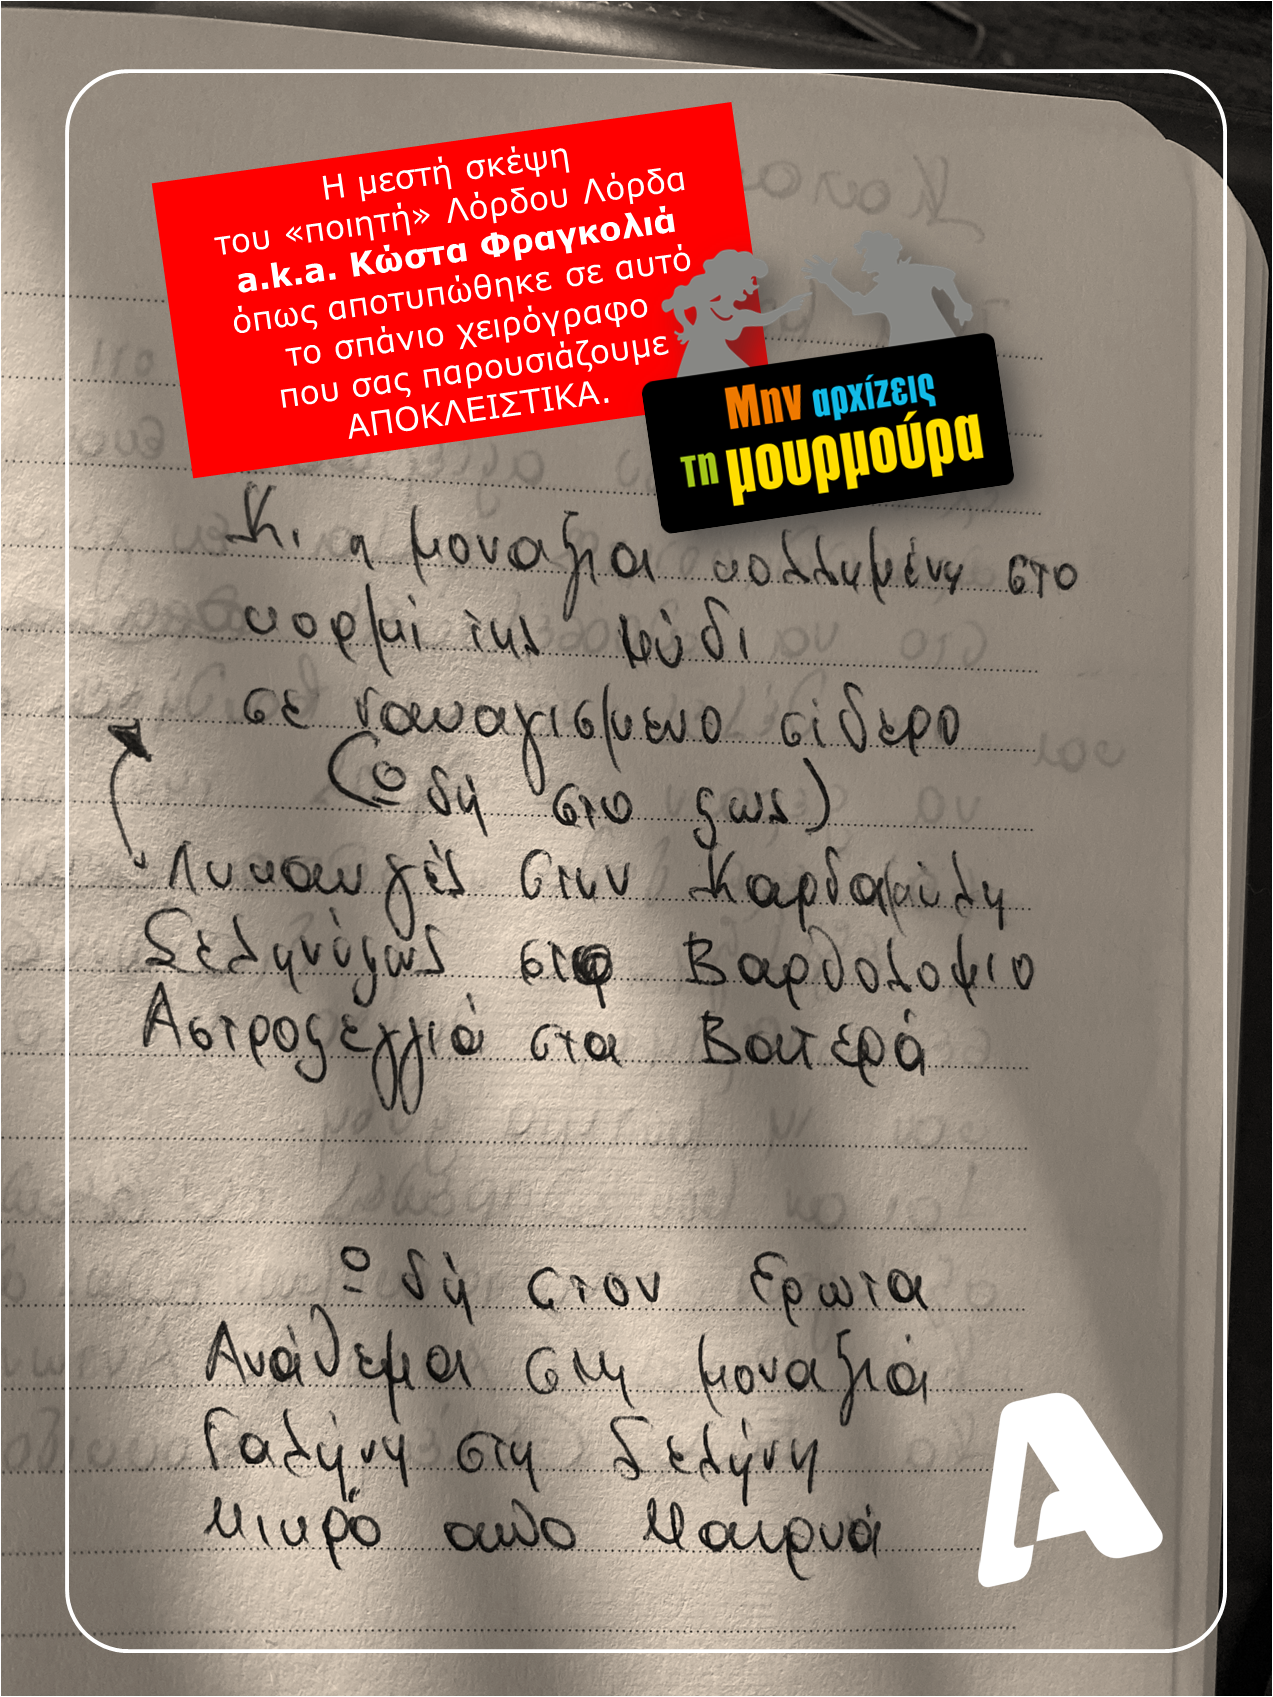 Η μεστή σκέψη
του «ποιητή» Λόρδου Λόρδα
a.k.a. Κώστα Φραγκολιά
όπως αποτυπώθηκε σε αυτό
το σπάνιο χειρόγραφο
που σας παρουσιάζουμε
ΑΠΟΚΛΕΙΣΤΙΚΑ.
Μην αρχίζεις
τη μουρμούρα
Κι η μοναξια κολλημένη στο
κορμί της μύδι
σε ναυαγισμενο σίδερο
(Ωδή στο φως)
Λυκαυγές στην Καρδαμύλη
Σεληνόφως στο Βαρθολομιο
Αστροφεγγιά στα Βατερά
Ωδή στον Ερωτα
Ανάθεμα στη μοναξιά
Γαλήνη στη Σελήνη
Μικρό απο Μακρυά
A